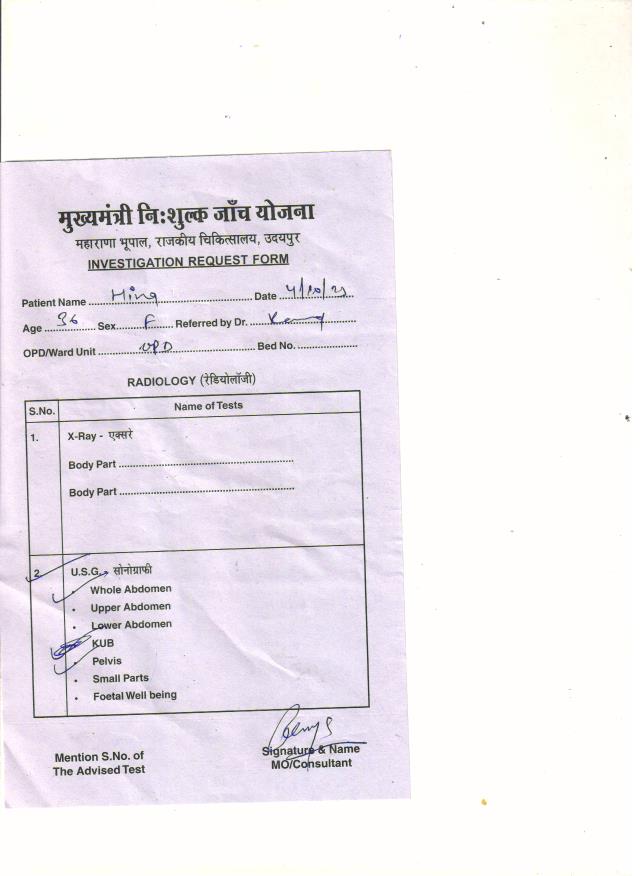 मुख्यमंत्री निःशुल्क जाँच योजना
महाराणा भूपाल, राजकीय चिकित्सालय, उदयपुर
INVESTIGATION REQUEST FORM
Patient Name ............ Date ............
Age 36 Sex F Referred by Dr. ............
OPD/Ward Unit OPD Bed No. ............
RADIOLOGY (रेडियोलॉजी)
S.No. Name of Tests
1. X-Ray - एक्सरे
Body Part ............
Body Part ............
2. U.S.G. - सोनोग्राफी
• Whole Abdomen
• Upper Abdomen
• Lower Abdomen
• KUB
• Pelvis
• Small Parts
• Foetal Well being
Mention S.No. of
The Advised Test
Signature & Name
MO/Consultant